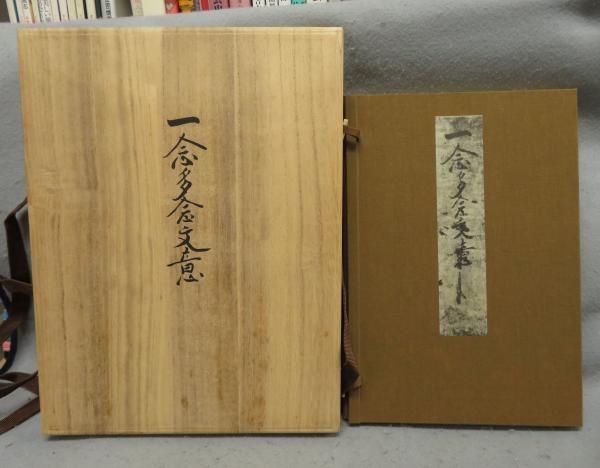 一念多念文意
一念多念文意